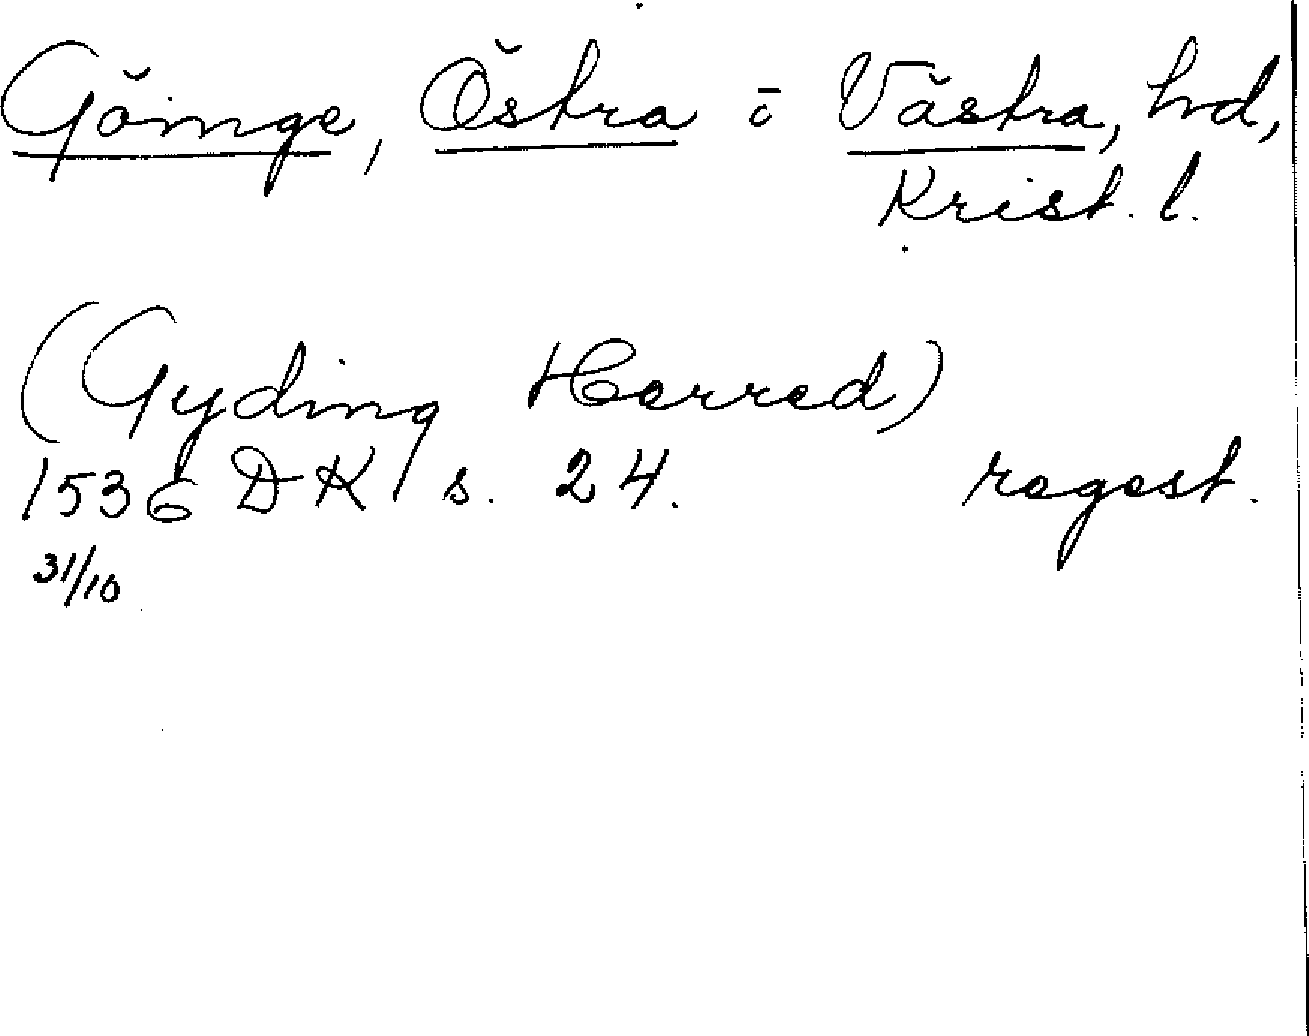 Göinge, Östra o Västra, hrd,
Krist. l.
(Gyding Herred)
1536 DK s. 24. regest.
31/10